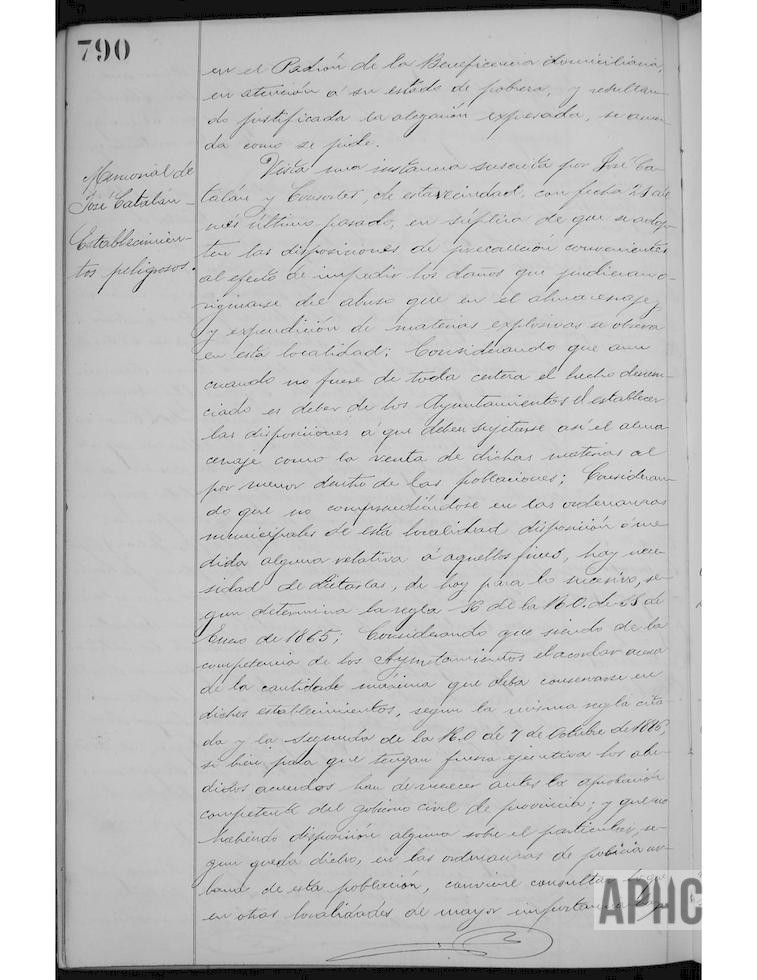 790
en el Padrón de la Beneficencia domiciliaria,
en atención á su estado de pobreza, y resultan-
do justificada la alegación expresada, se acuer-
da como se pide.
Memorial de
José Catalán
Establecimien-
tos peligrosos.
Vista una instancia suscrita por José Ca-
talán y Consortes, de esta vecindad, con fecha 21 del
mes último pasado, en súplica de que se adop-
ten las disposiciones de precaución convenientes
al efecto de impedir los daños que pudieran o-
riginarse del abuso que en el almacenaje
y expendición de materias explosivas se observa
en esta localidad; Considerando que aun
cuando no fuese de toda certeza el hecho denun-
ciado es deber de los Ayuntamientos el establecer
las disposiciones á que deben sujetarse así el alma
cenaje como la venta de dichas materias al
por menor dentro de las poblaciones; Consideran-
do que no comprendiéndose en las ordenanzas
municipales de esta localidad disposición ó me
dida alguna relativa á aquellos fines, hay nece-
sidad de dictarlas, de hoy para lo sucesivo, se-
gun determina la regla de la R.O. de de
Enero de 1865; Considerando que siendo de la
competencia de los Ayuntamientos el acordar acerca
de la cantidad máxima que deba conservarse en
dichos establecimientos, segun la misma regla cita-
da y la segunda de la R.O de 7 de Octubre de 1886,
si bien para que tengan fuerza ejecutiva los alu-
didos acuerdos han de merecer antes la aprobación
competente del gobierno civil de provincia; y que no
habiendo disposición alguna sobre el particular, se-
gun queda dicho, en las ordenanzas de policía ur-
bana de esta población, conviene consultar lo que
en otras localidades de mayor importancia
APHC